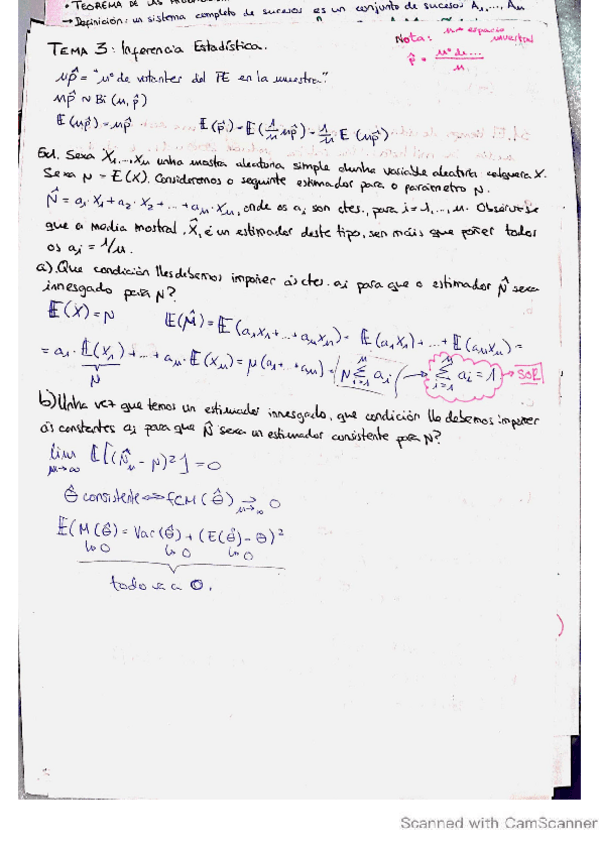 • TEOREMA DE LAS
→ Definición: un sistema completo de sucesos es un conjunto de sucesos A₁,..., Aₙ
Nota: n→ espacio muestral
p̂ = nº de... / n
TEMA 3: Inferencia Estadística.
np̂ = "nº de votantes del PE en la muestra"
np̂ ~ Bi(n, p̂)
E(np̂) = np̂ E(p̂) = E(1/n np̂) = 1/n E(np̂)
Ex1. Sexa X₁,...,Xn unha mostra aleatoria simple dunha variable aleatoria calquera X.
Sexa N = E(X). Consideremos o seguinte estimador para o parámetro N.
N̂ = a₁·X₁ + a₂·X₂ + ... + aₙ·Xₙ, onde os aᵢ son ctes., para i=1,...,n. Obsérvese
que a media mostral, X̂, é un estimador deste tipo, sen máis que poñer todos
os aᵢ = 1/n.
a). Que condición lles debemos impoñer ás ctes. aᵢ para que o estimador N̂ sexa
innesgado para N?
E(X) = N E(N̂) = E(a₁X₁+...+aₙXₙ) = E(a₁X₁)+...+E(aₙXₙ) =
= a₁·E(X₁)+...+aₙ·E(Xₙ) = N(a₁+...+aₙ) = N Σ aᵢ → Σ aᵢ = 1 → SOL
N
b) Unha vez que temos un estimador innesgado, que condición lle debemos impoñer
ás constantes aᵢ para que N̂ sexa un estimador consistente para N?
lim n→∞ E[(N̂ₙ - N)²] = 0
θ̂ consistente ⟺ ECM(θ̂) → n→∞ 0
ECM(θ̂) = Var(θ̂) + (E(θ̂) - θ)²
↳0 ↳0 ↳0
todo va a 0.
Scanned with CamScanner